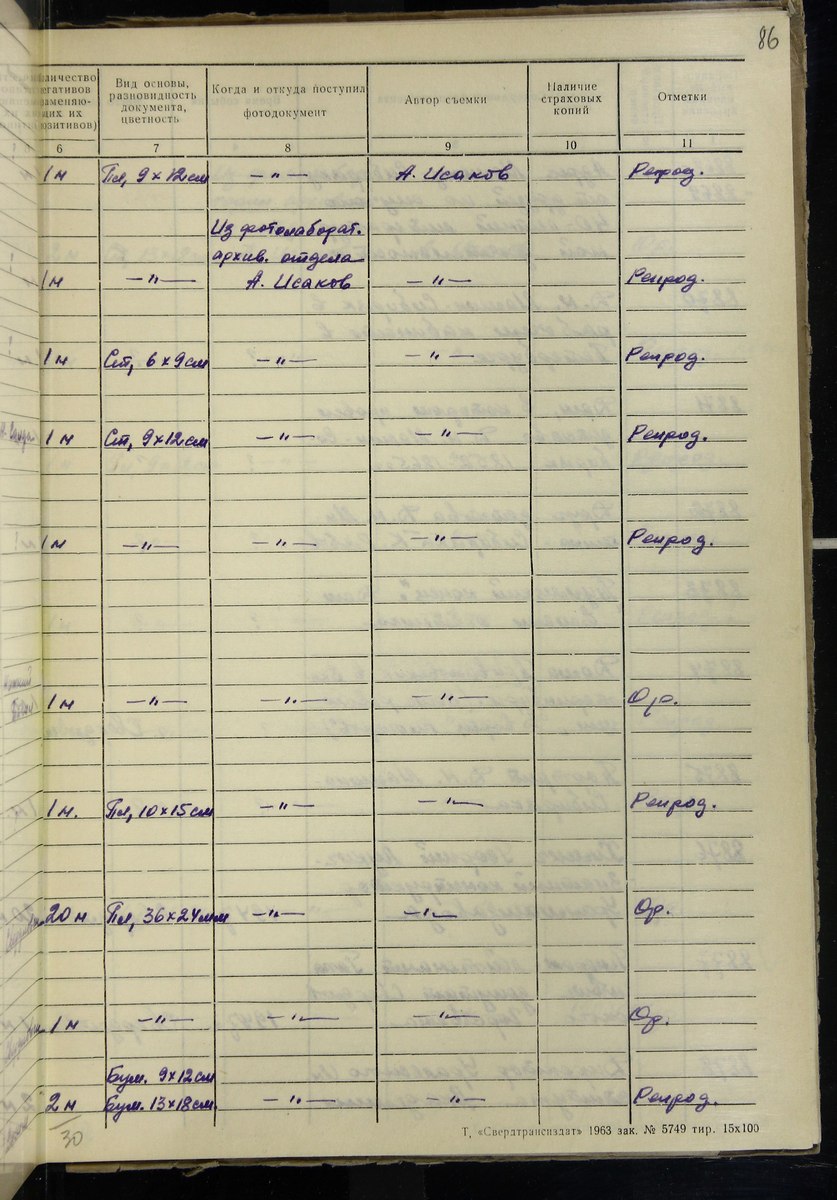 86
личество
егативов
аменяю-
щих их
озитивов)
Вид основы,
разновидность
документа,
цветность
Когда и откуда поступил
фотодокумент
Автор съемки
Наличие
страховых
копий
Отметки
6 7 8 9 10 11
1 м Пл, 9×12 см —"— А. Исаков Репрод.
Из фотолаборат.
архив. отдела
1 м —"— А. Исаков —"— Репрод.
1 м Ст, 6×9 см —"— —"— Репрод.
1 м Ст, 9×12 см —"— —"— Репрод.
1 м —"— —"— —"— Репрод.
1 м —"— —"— —"— Ор.
1 м. Пл, 10×15 см —"— —"— Репрод.
20 м Пл, 36×24 мм —"— —"— Ор.
1 м —"— —"— —"— Ор.
Бум. 9×12 см
2 м Бум. 13×18 см. —"— —"— Репрод.
30
Т. «Свердтрансиздат» 1963 зак. № 5749 тир. 15х100